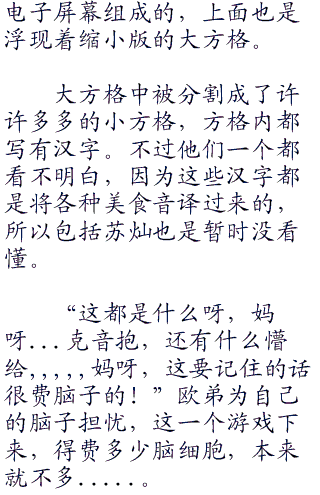 电子屏幕组成的，上面也是
浮现着缩小版的大方格。
大方格中被分割成了许
许多多的小方格，方格内都
写有汉字。不过他们一个都
看不明白，因为这些汉字都
是将各种美食音译过来的，
所以包括苏灿也是暂时没看
懂。
“这都是什么呀，妈
呀...克音抱，还有什么懵
给,,,,,妈呀，这要记住的话
很费脑子的！”欧弟为自己
的脑子担忧，这一个游戏下
来，得费多少脑细胞，本来
就不多.....。